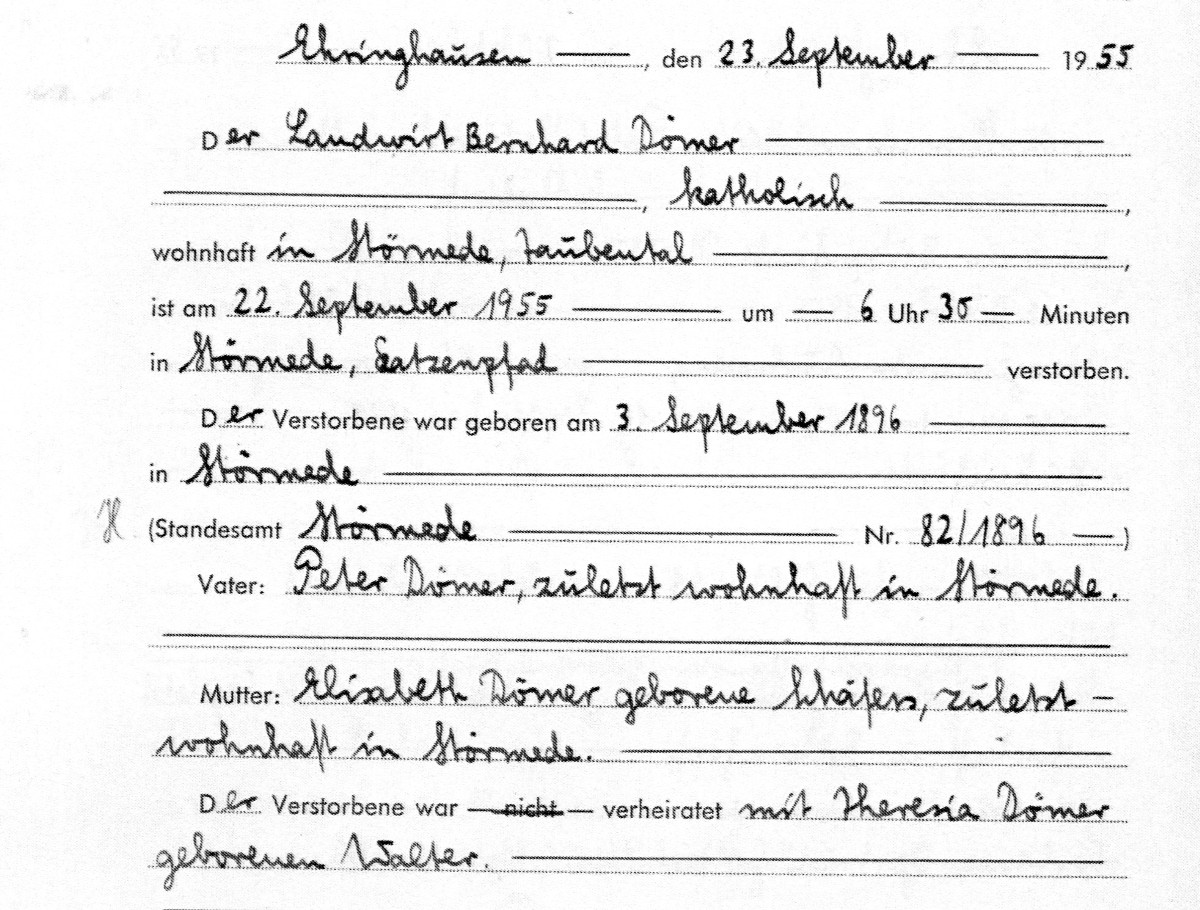 Ehringhausen, den 23. September 1955
Der Landwirt Bernhard Dömer
, katholisch,
wohnhaft in Störmede, Taubental,
ist am 22. September 1955 um 6 Uhr 30 Minuten
in Störmede, verstorben.
Der Verstorbene war geboren am 3. September 1896
in Störmede
(Standesamt Störmede Nr. 82/1896)
Vater: Peter Dömer, zuletzt wohnhaft in Störmede.
Mutter: Elisabeth Dömer geborene Schäfers, zuletzt
wohnhaft in Störmede.
Der Verstorbene war nicht verheiratet mit Theresia Dömer
geborenen Walter.